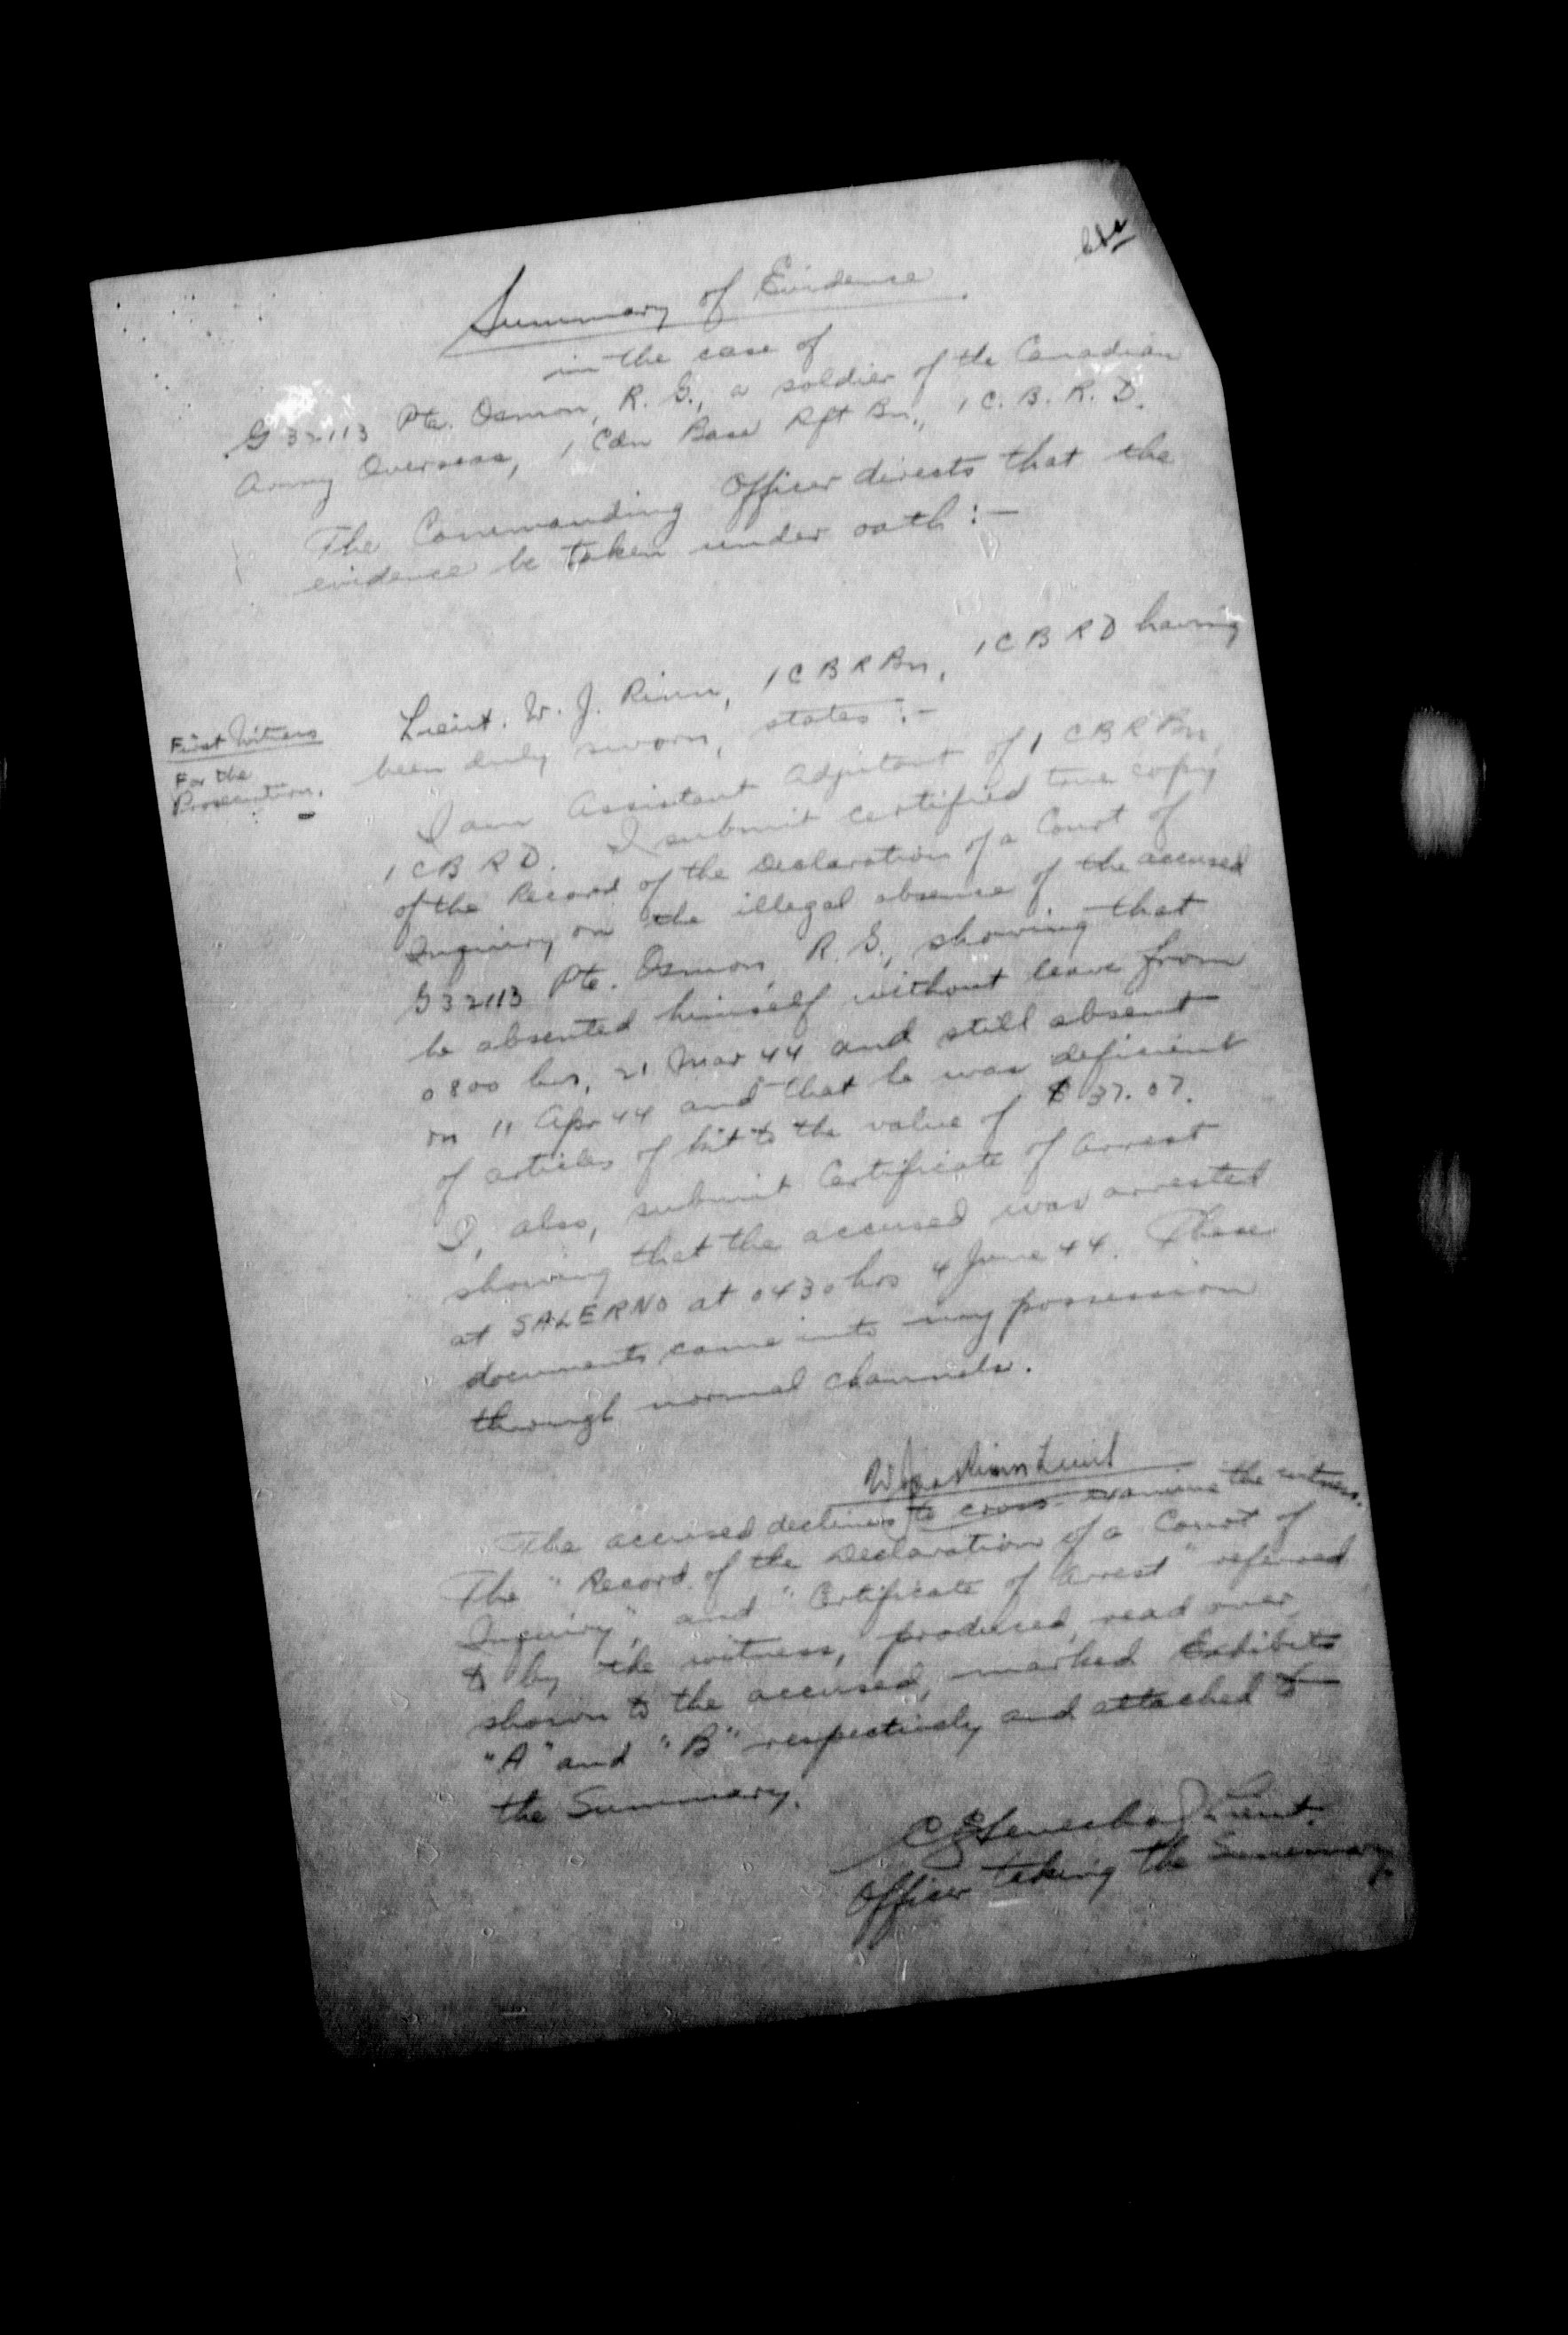 Summary of Evidence
in the case of
G 32113 Pte. Osmon, R. G., a soldier of the Canadian
Army Overseas, 1 Cdn Base Rft Bn., 1 C. B. R. D.
The Commanding Officer directs that the
evidence be taken under oath :-
First Witness
For the
Prosecution.
Lieut. W. J. Rinn, 1 C B R Bn, 1 C B R D having
been duly sworn, states :-
I am Assistant Adjutant of 1 C B R Bn,
1 C B R D. I submit certified true copy
of the Record of the Declaration of a Court of
Inquiry on the illegal absence of the accused
G32113 Pte. Osmon, R. G., showing that
he absented himself without leave from
0800 hrs, 21 Mar 44 and still absent
on 11 Apr 44 and that he was deficient
of articles of kit to the value of $ 37.07.
I, also, submit Certificate of Arrest
showing that the accused was arrested
at SALERNO at 0430 hrs 4 June 44. These
documents came into my possession
through normal channels.
Rinn Lieut
The accused declines to cross-examine the witness.
The "Record of the Declaration of a Court of
Inquiry", and "Certificate of Arrest" referred
to by the witness, produced, read over,
shown to the accused, marked Exhibits
"A" and "B" respectively and attached to
the Summary.
Lieut.
Officer taking the Summary.